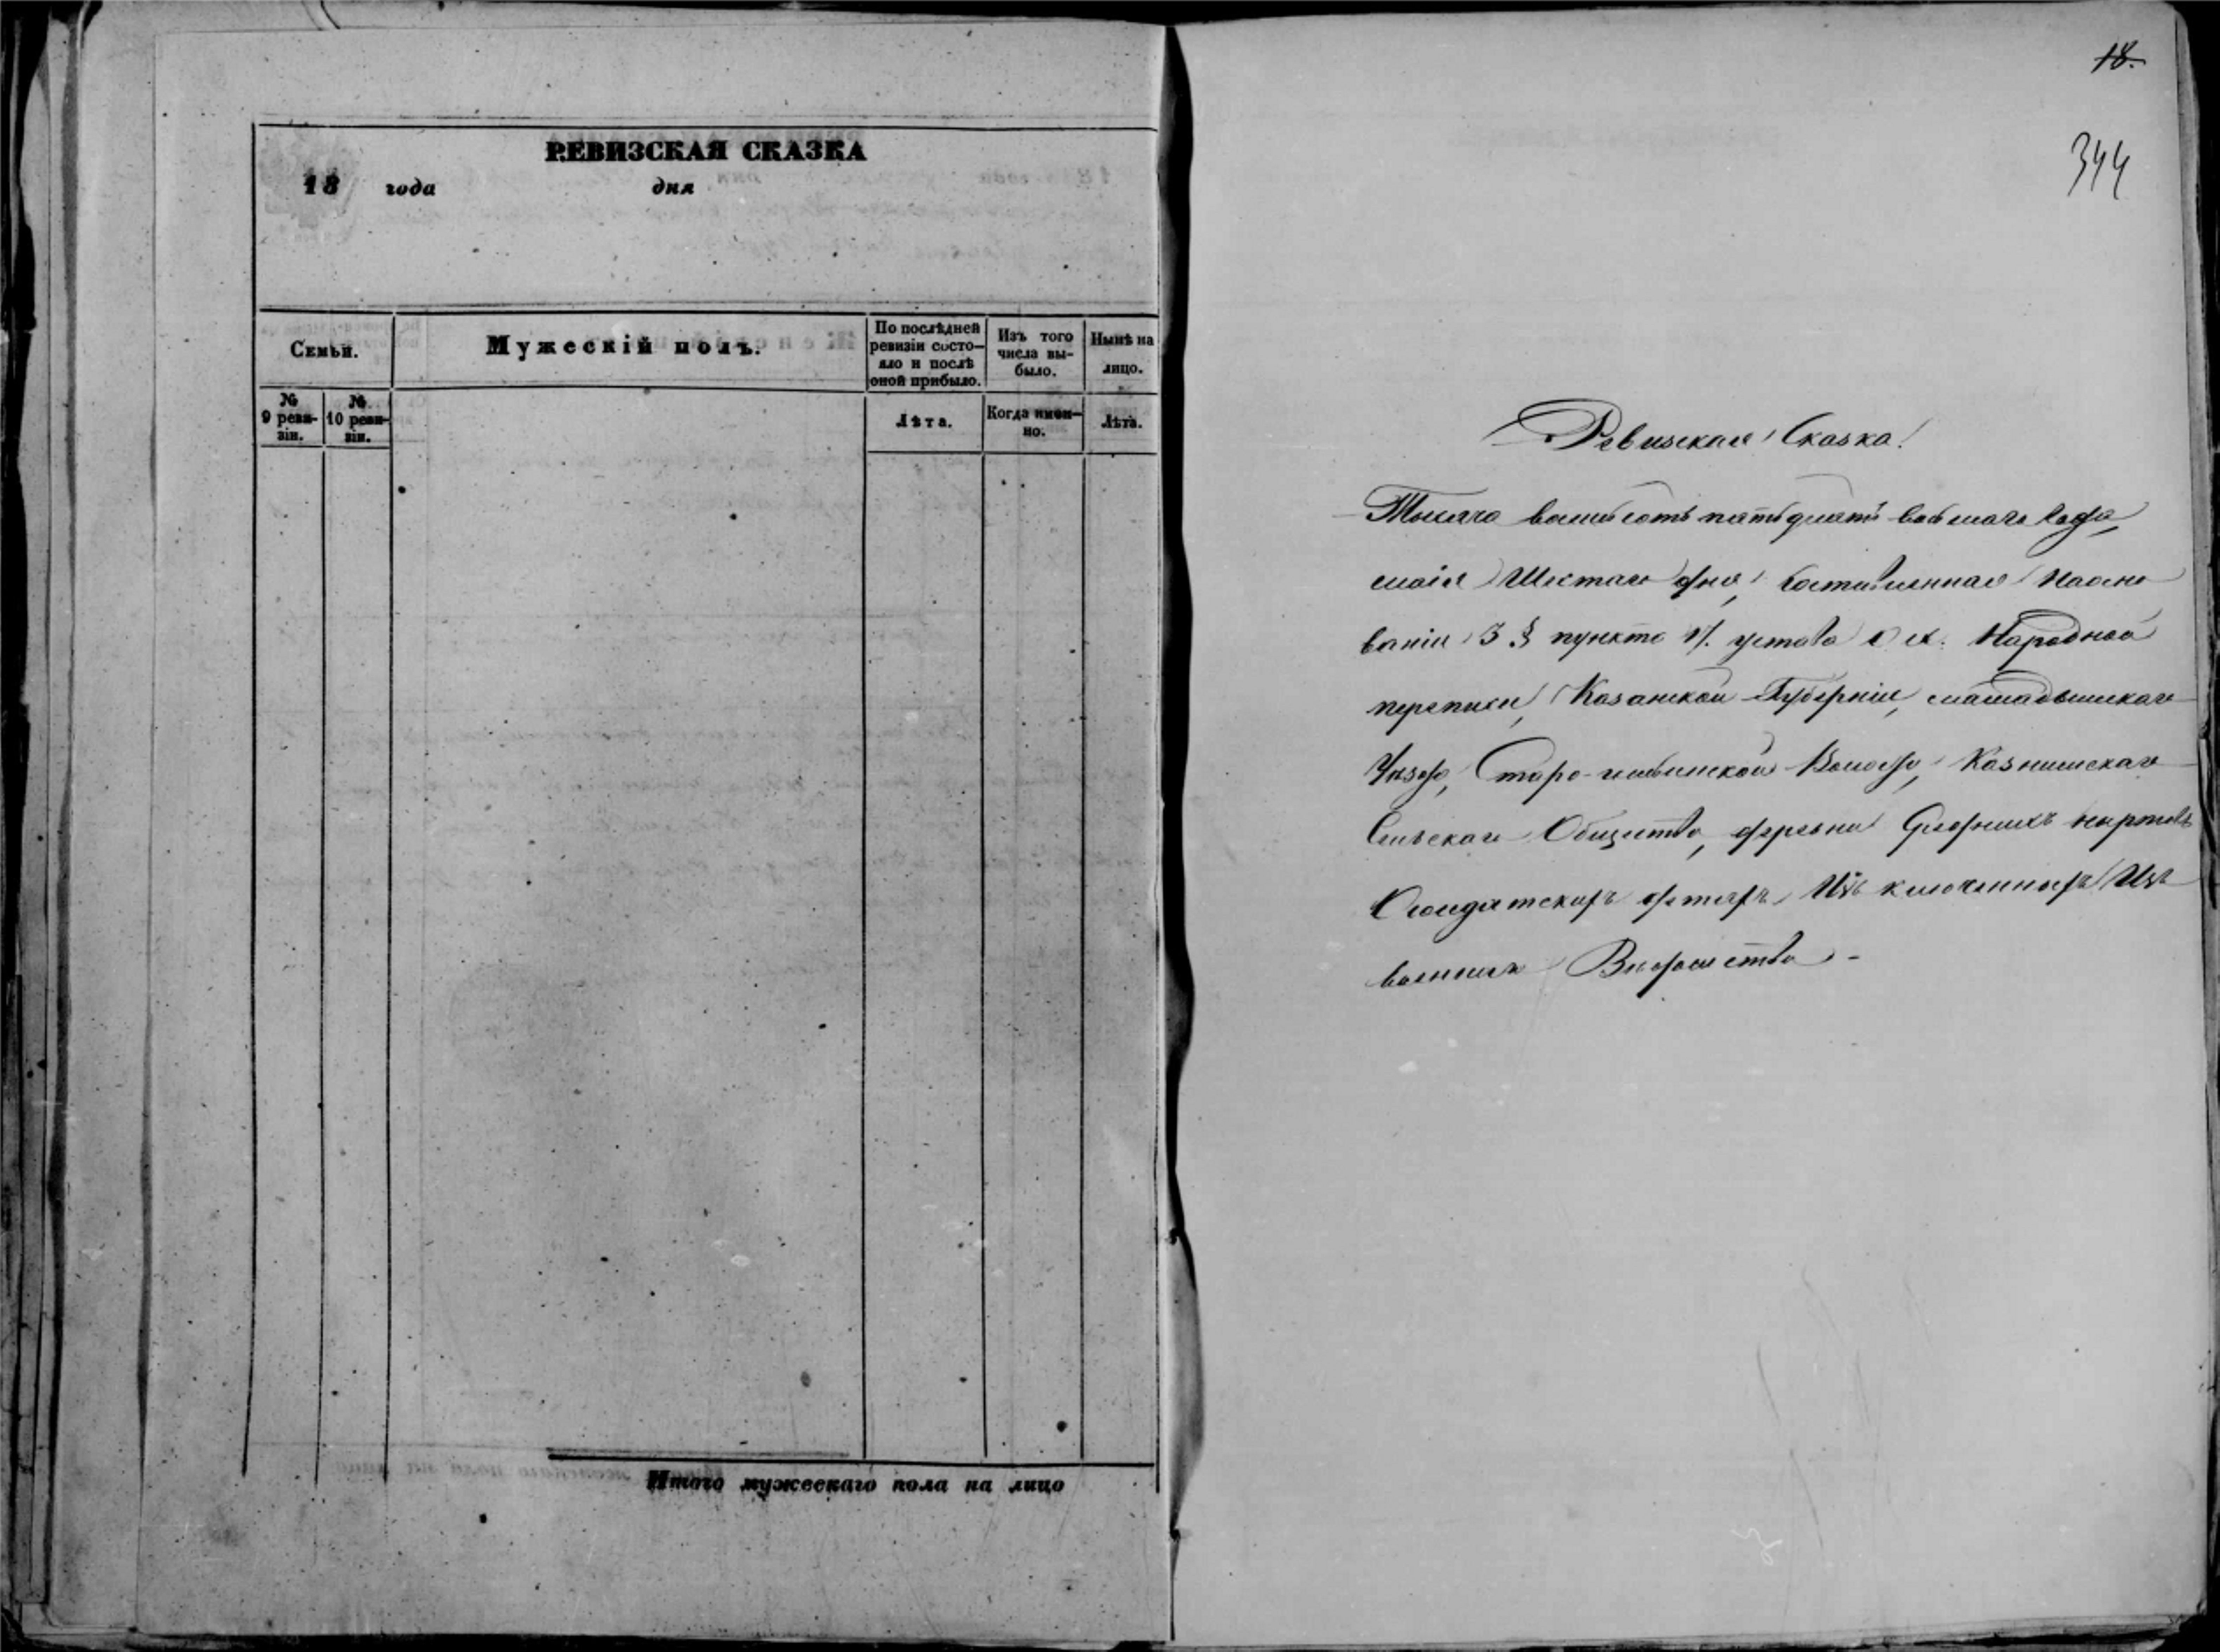 РЕВИЗСКАЯ СКАЗКА
18 года дня
Семьи.
Мужескій полъ.
По послѣдней
ревизіи состо-
яло и послѣ
оной прибыло.
Изъ того
числа вы-
было.
Нынѣ на
лицо.
№
9 реви-
зіи.
№
10 реви-
зіи.
Лѣта.
Когда имен-
но.
Лѣта.
Итого мужескаго пола на лицо
18.
344
Ревизская Сказка!
Тысяча восемьсотъ пятьдесятъ восьмаго года,
маія Шестаго дня, составленная наосно
ваніи 3 § пункта устава о Народной
переписи, Казанской Губерніи, мамадышскаго
Уѣзда, Старо- Волости,
Сельскаго Общества, деревни
Солдатскихъ дѣтяхъ Изключенныхъ Изъ
военнаго Вѣдомства -